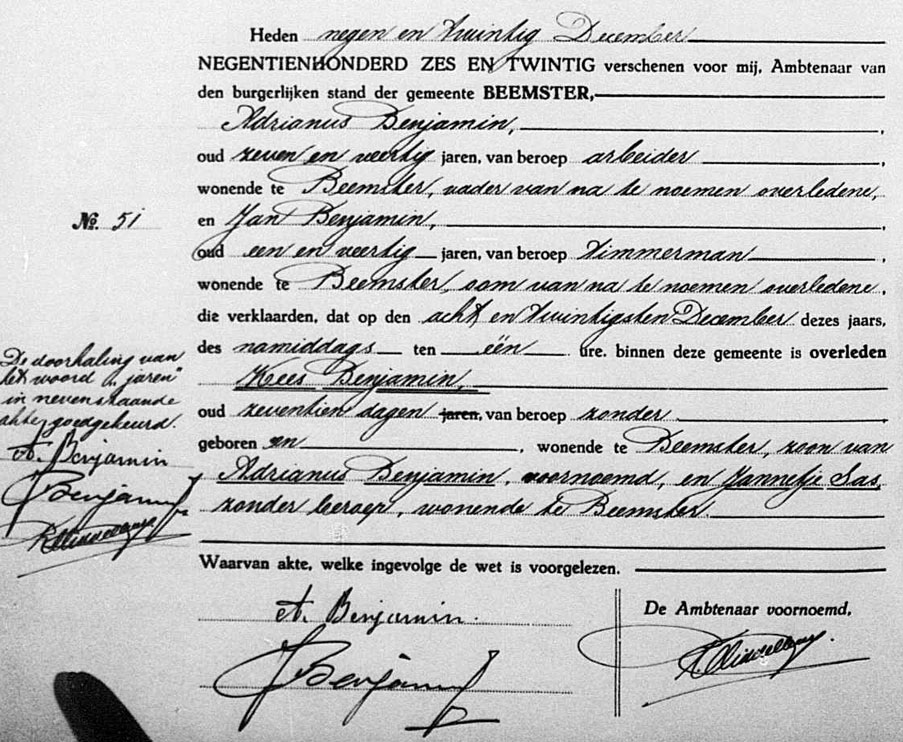 Heden negen en twintig December
NEGENTIENHONDERD ZES EN TWINTIG verschenen voor mij, Ambtenaar van
den burgerlijken stand der gemeente BEEMSTER,
Adrianus Benjamin,
oud zeven en veertig jaren, van beroep arbeider
wonende te Beemster, vader van na te noemen overledene,
en Jan Benjamin,
oud een en veertig jaren, van beroep timmerman
wonende te Beemster, oom van na te noemen overledene,
die verklaarden, dat op den acht en twintigsten December dezes jaars,
des namiddags ten één ure, binnen deze gemeente is overleden
Kees Benjamin,
oud zeventien dagen jaren, van beroep zonder
geboren en, wonende te Beemster, zoon van
Adrianus Benjamin, voornoemd, en Jannetje Sas,
zonder beroep, wonende te Beemster.
Waarvan akte, welke ingevolge de wet is voorgelezen.
A. Benjamin.
JBenjamin
De Ambtenaar voornoemd,
No. 51
De doorhaling van
het woord „jaren"
in nevenstaande
akte goedgekeurd.
A. Benjamin
JBenjamin